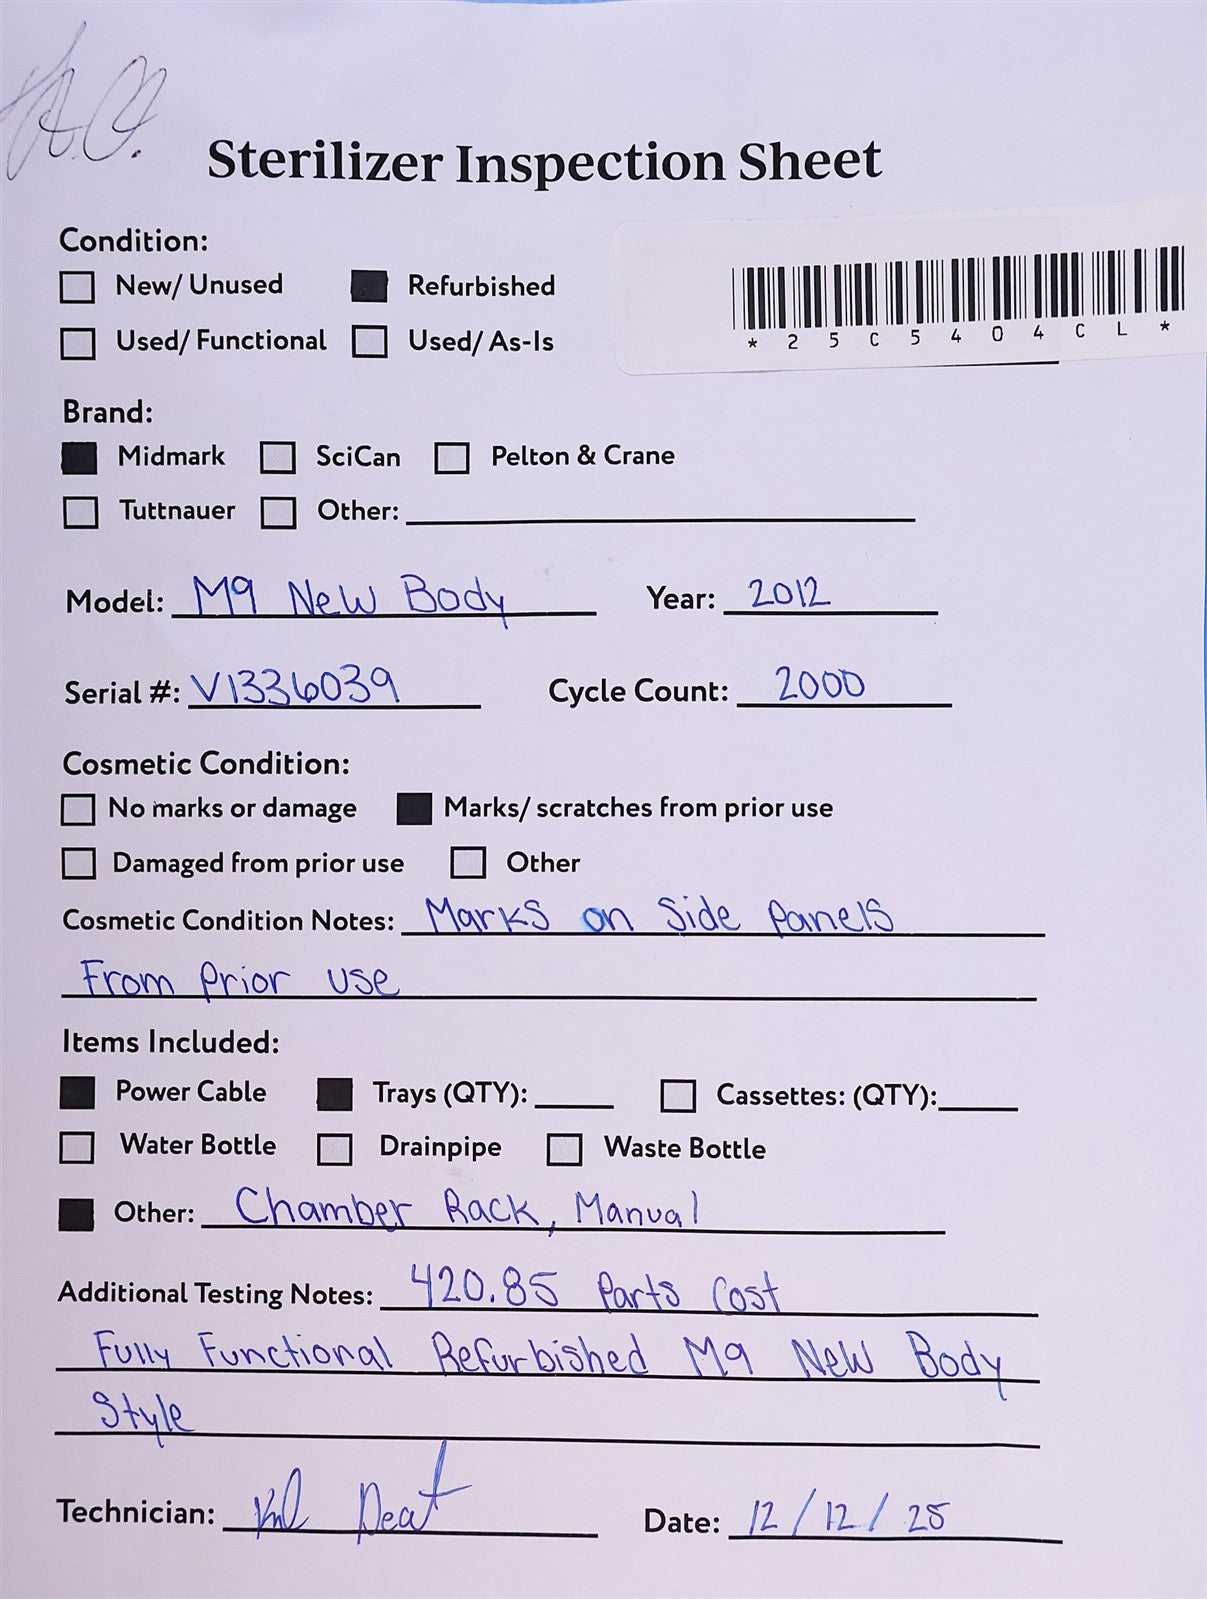 A.C.
Sterilizer Inspection Sheet
Condition:
New/ Unused Refurbished
Used/ Functional Used/ As-Is
*25C5404CL*
Brand:
Midmark SciCan Pelton & Crane
Tuttnauer Other:
Model: M9 New Body Year: 2012
Serial #: V1336039 Cycle Count: 2000
Cosmetic Condition:
No marks or damage Marks/ scratches from prior use
Damaged from prior use Other
Cosmetic Condition Notes: Marks on Side Panels
From Prior use
Items Included:
Power Cable Trays (QTY): Cassettes: (QTY):
Water Bottle Drainpipe Waste Bottle
Other: Chamber Rack, Manual
Additional Testing Notes: 420.85 Parts Cost
Fully Functional Refurbished M9 New Body
Style
Technician:
Date: 12/12/25